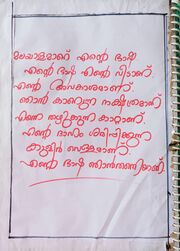 മലയാളമാണ് എന്റെ ഭാഷ
എന്റെ ഭാഷ എന്റെ വീടാണ്.
എന്റെ ആകാശമാണ്.
ഞാൻ കാണുന്ന നക്ഷത്രമാണ്.
എന്നെ തഴുകുന്ന കാറ്റാണ്.
എന്റെ ദാഹം ശമിപ്പിക്കുന്ന
കുളിർ വെള്ളമാണ്.
എന്റെ ഭാഷ ഞാൻതന്നെയാണ്.